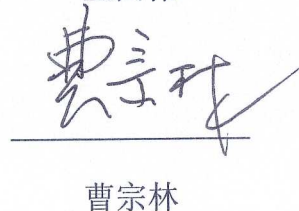 曹宗林
曹宗林